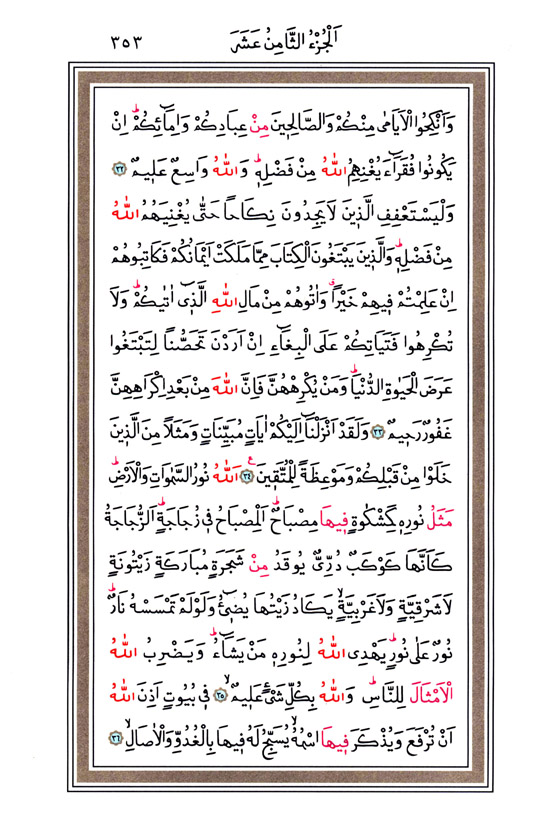 اَلْجُزْءُ الثَّامِنُ عَشَرَ ٣٥٣
وَاَنْكِحُوا الْاَيَامٰى مِنْكُمْ وَالصَّالِحٖينَ مِنْ عِبَادِكُمْ وَاِمَٓائِكُمْؕ اِنْ
يَكُونُوا فُقَرَٓاءَ يُغْنِهِمُ اللّٰهُ مِنْ فَضْلِهٖؕ وَاللّٰهُ وَاسِعٌ عَلٖيمٌ ﴿٣٢﴾
وَلْيَسْتَعْفِفِ الَّذٖينَ لَا يَجِدُونَ نِكَاحًا حَتّٰى يُغْنِيَهُمُ اللّٰهُ
مِنْ فَضْلِهٖؕ وَالَّذٖينَ يَبْتَغُونَ الْكِتَابَ مِمَّا مَلَكَتْ اَيْمَانُكُمْ فَكَاتِبُوهُمْ
اِنْ عَلِمْتُمْ فٖيهِمْ خَيْرًاࣗ وَاٰتُوهُمْ مِنْ مَالِ اللّٰهِ الَّذٖٓى اٰتٰيكُمْؕ وَلَا
تُكْرِهُوا فَتَيَاتِكُمْ عَلَى الْبِغَٓاءِ اِنْ اَرَدْنَ تَحَصُّنًا لِتَبْتَغُوا
عَرَضَ الْحَيٰوةِ الدُّنْيَاؕ وَمَنْ يُكْرِهْهُنَّ فَاِنَّ اللّٰهَ مِنْ بَعْدِ اِكْرَاهِهِنَّ
غَفُورٌ رَحٖيمٌ ﴿٣٣﴾ وَلَقَدْ اَنْزَلْنَٓا اِلَيْكُمْ اٰيَاتٍ مُبَيِّنَاتٍ وَمَثَلًا مِنَ الَّذٖينَ
خَلَوْا مِنْ قَبْلِكُمْ وَمَوْعِظَةً لِلْمُتَّقٖينَ ﴿٣٤﴾ اَللّٰهُ نُورُ السَّمٰوَاتِ وَالْاَرْضِؕ
مَثَلُ نُورِهٖ كَمِشْكٰوةٍ فٖيهَا مِصْبَاحٌؕ اَلْمِصْبَاحُ فٖى زُجَاجَةٍؕ اَلزُّجَاجَةُ
كَاَنَّهَا كَوْكَبٌ دُرِّىٌّ يُوقَدُ مِنْ شَجَرَةٍ مُبَارَكَةٍ زَيْتُونَةٍ
لَا شَرْقِيَّةٍ وَلَا غَرْبِيَّةٍۙ يَكَادُ زَيْتُهَا يُضٖٓيءُ وَلَوْ لَمْ تَمْسَسْهُ نَارٌؕ
نُورٌ عَلٰى نُورٍؕ يَهْدِى اللّٰهُ لِنُورِهٖ مَنْ يَشَٓاءُؕ وَيَضْرِبُ اللّٰهُ
الْاَمْثَالَ لِلنَّاسِؕ وَاللّٰهُ بِكُلِّ شَىْءٍ عَلٖيمٌۙ ﴿٣٥﴾ فٖى بُيُوتٍ اَذِنَ اللّٰهُ
اَنْ تُرْفَعَ وَيُذْكَرَ فٖيهَا اسْمُهُۙ يُسَبِّحُ لَهُ فٖيهَا بِالْغُدُوِّ وَالْاٰصَالِۙ ﴿٣٦﴾